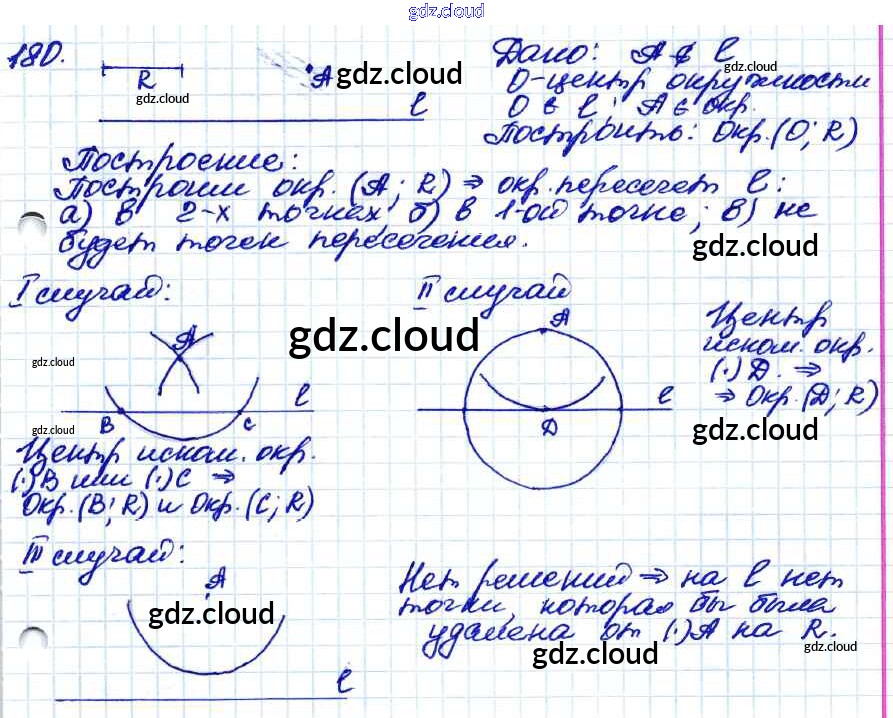 gdz.cloud
180.
R
A
l
Дано: A ∉ l
O-центр окружности
O ∈ l; A ∈ окр.
Построить: Окр.(O; R)
Построение:
Построим окр. (A; R) ⇒ окр. пересечет l:
а) в 2-х точках; б) в 1-ой точке; в) не
будет точек пересечения.
I случай:
A
B
C
l
Центр иском. окр.
(·)B или (·)C ⇒
Окр.(B; R) и Окр.(C; R)
II случай
A
D
l
Центр
иском. окр.
(·) D. ⇒
⇒ Окр.(D; R)
III случай:
A
l
Нет решений ⇒ на l нет
точки, которая бы была
удалена от (·)A на R.
gdz.cloud
gdz.cloud
gdz.cloud
gdz.cloud
gdz.cloud
gdz.cloud
gdz.cloud
gdz.cloud
gdz.cloud
gdz.cloud
gdz.cloud
gdz.cloud